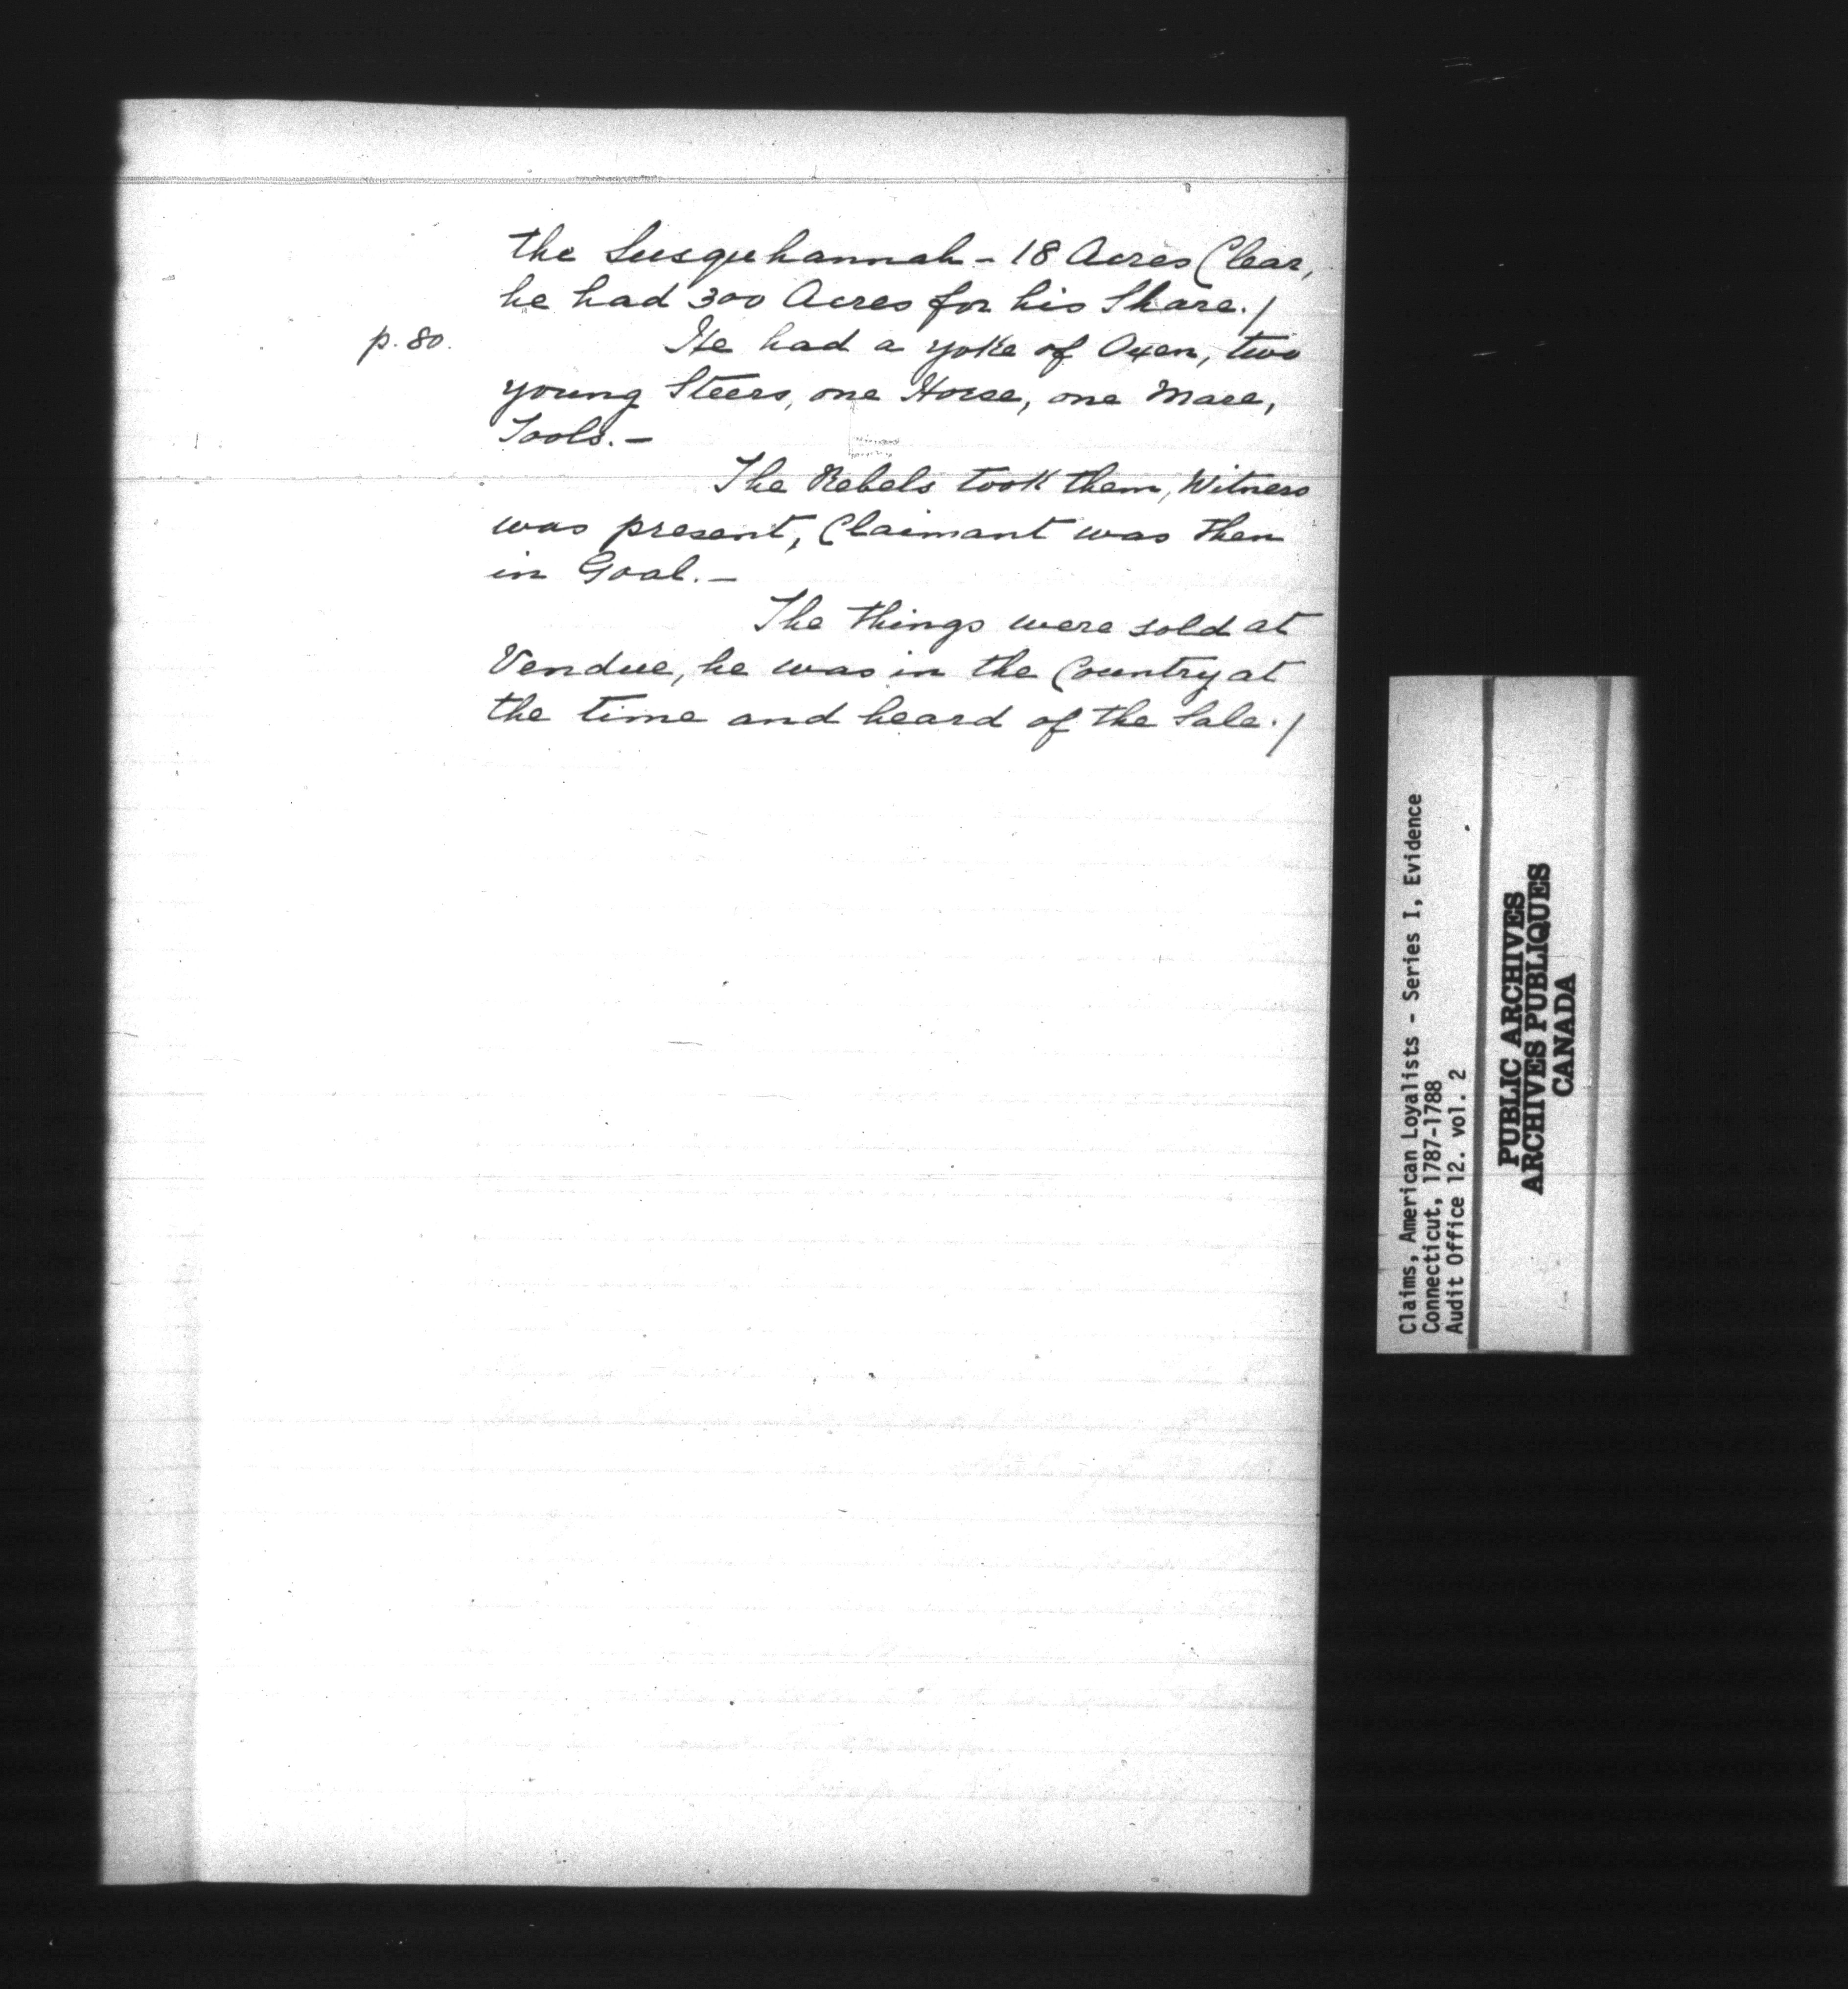 the Susquhannah - 18 Acres Clear,
he had 300 Acres for his Share./
p. 80.
He had a yoke of Oxen, two
young Steers, one Horse, one Mare,
Tools. -
The Rebels took them, Witness
was present, Claimant was then
in Goal. -
The things were sold at
Vendue, he was in the Country at
the time and heard of the Sale./
Claims, American Loyalists - Series I, Evidence
Connecticut, 1787-1788
Audit Office 12. vol. 2
PUBLIC ARCHIVES
ARCHIVES PUBLIQUES
CANADA